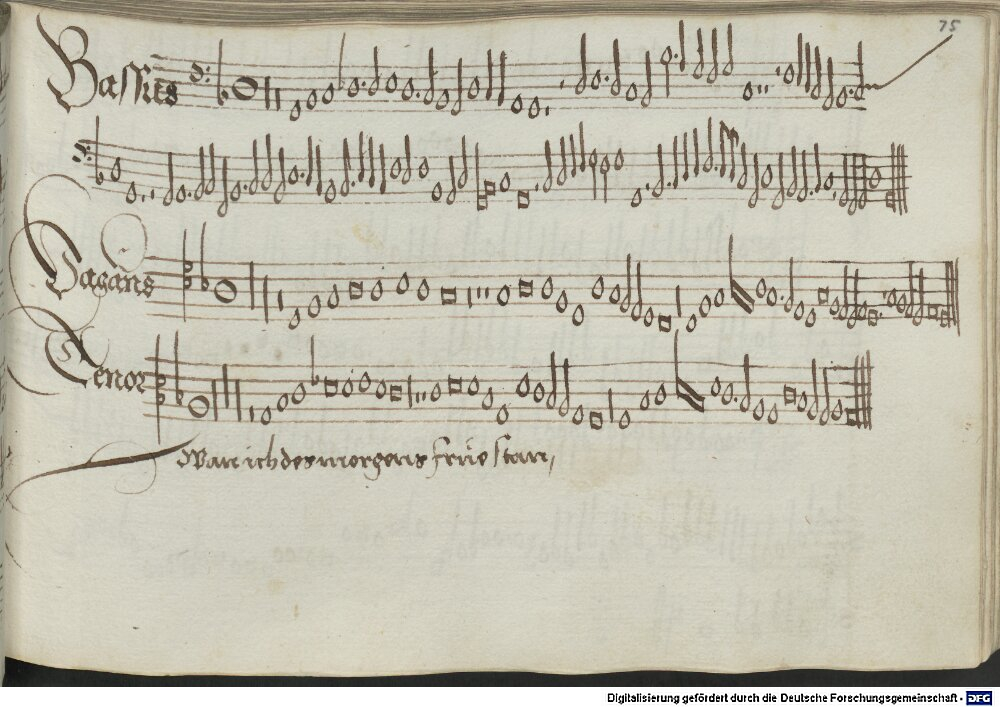 75
Bassus
Vagans
Tenor
Wan ich des morgens frue stan,
Digitalisierung gefördert durch die Deutsche Forschungsgemeinschaft - DFG